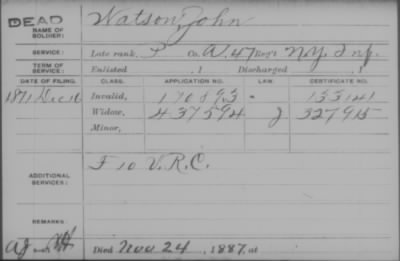 DEAD
NAME OF SOLDIER: Watson, John
SERVICE: Late rank, P Co. A, 47 Reg't N.Y. Inf.
TERM OF SERVICE: Enlisted , 1 Discharged , 1
DATE OF FILING. CLASS. APPLICATION NO. LAW. CERTIFICATE NO.
1871 Dec 16 Invalid, 170893 - 133141
Widow, 437594 327915
Minor,
ADDITIONAL SERVICES: F 10 V.R.C.
REMARKS:
Died Nov 24, 1887, at